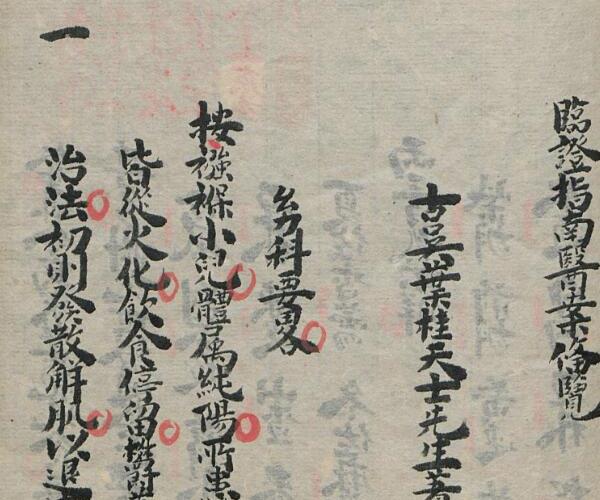 臨證指南醫案備覽
古吳葉桂天士先生著
幼科要畧
按襁褓小兒體屬純陽所患
皆從火化飲食停留欝
治法初則發散解肌以退
一